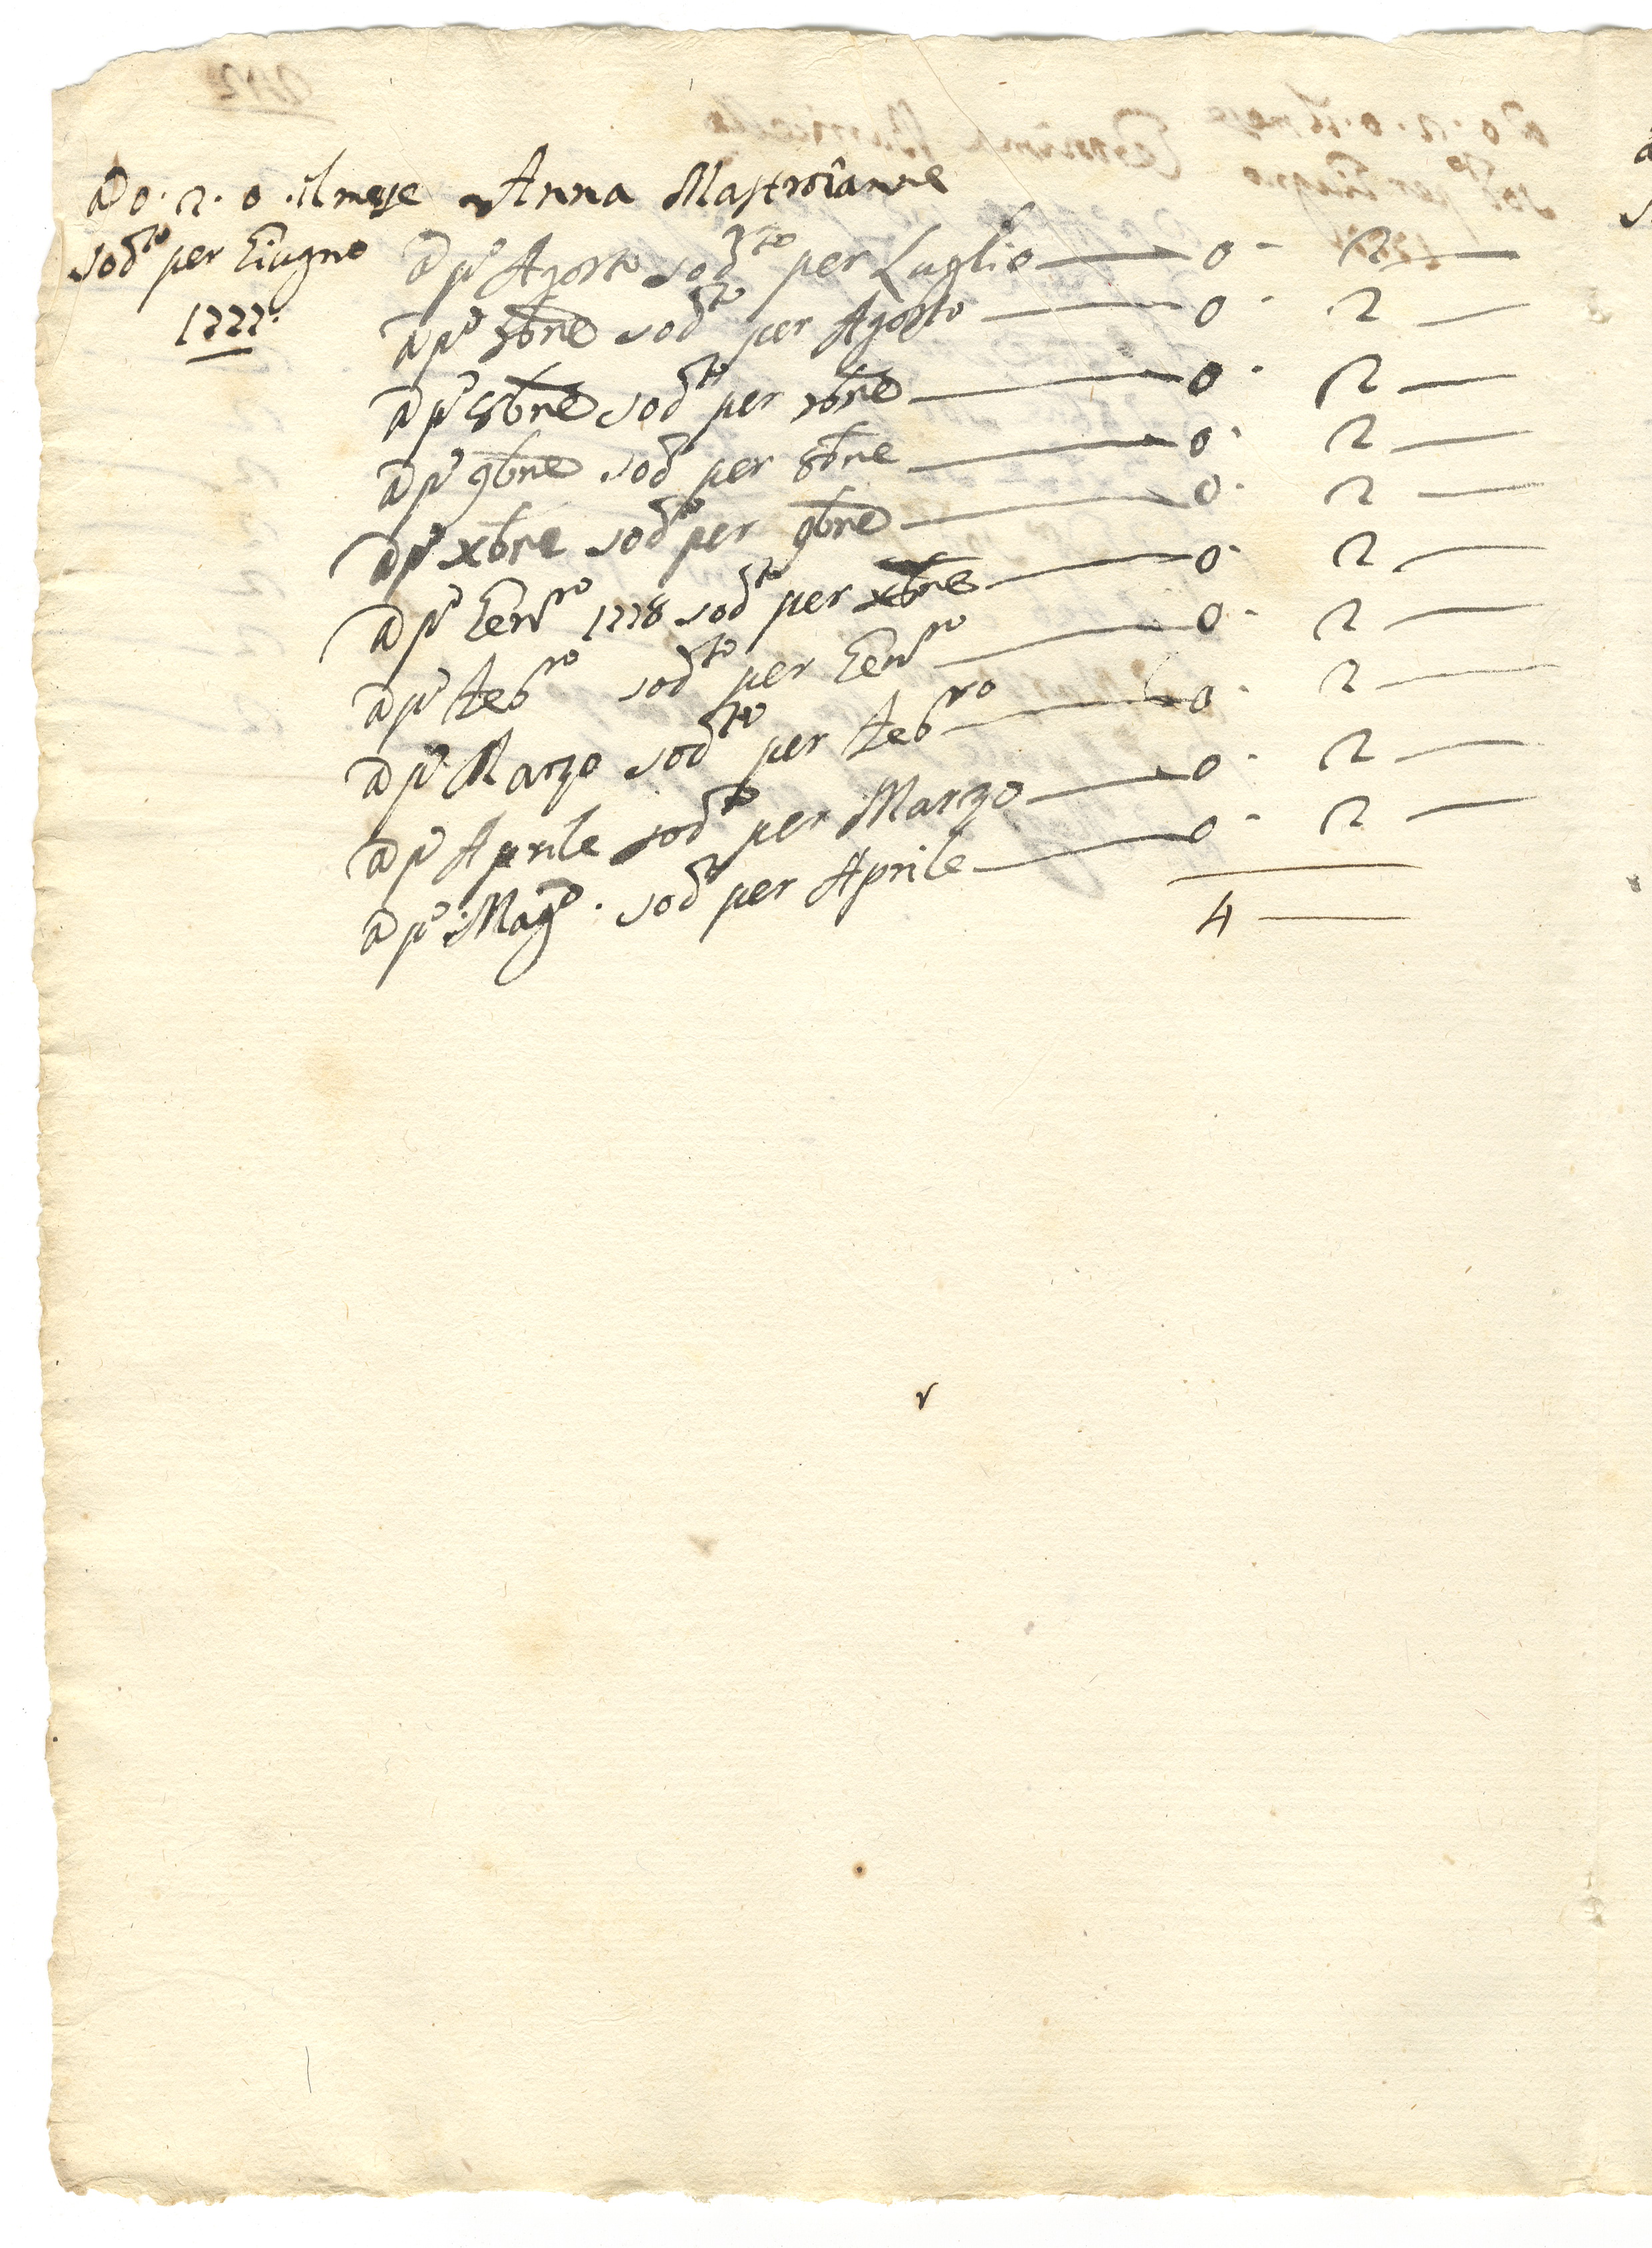 a 0. 2. 0. il mese Anna Mastroianne
sod.to per Giugno
1777.
a p.o Agosto sod.to per Luglio — 0 - 2 —
a p.o 7bre sod.to per Agosto — 0 - 2 —
a p.o 8bre sod.to per 7bre — 0 - 2 —
a p.o 9bre sod.to per 8bre — 0 - 2 —
a p.o xbre sod.to per 9bre — 0 - 2 —
a p.o Genn.ro 1778 sod.to per xbre — 0 - 2 —
a p.o Feb.ro sod.to per Genn.ro — 0 - 2 —
a p.o Marzo sod.to per Feb.ro — 0 - 2 —
a p.o Aprile sod.to per Marzo — 0 - 2 —
a p.o Mag.o sod.to per Aprile — 0 - 2 —
4 —